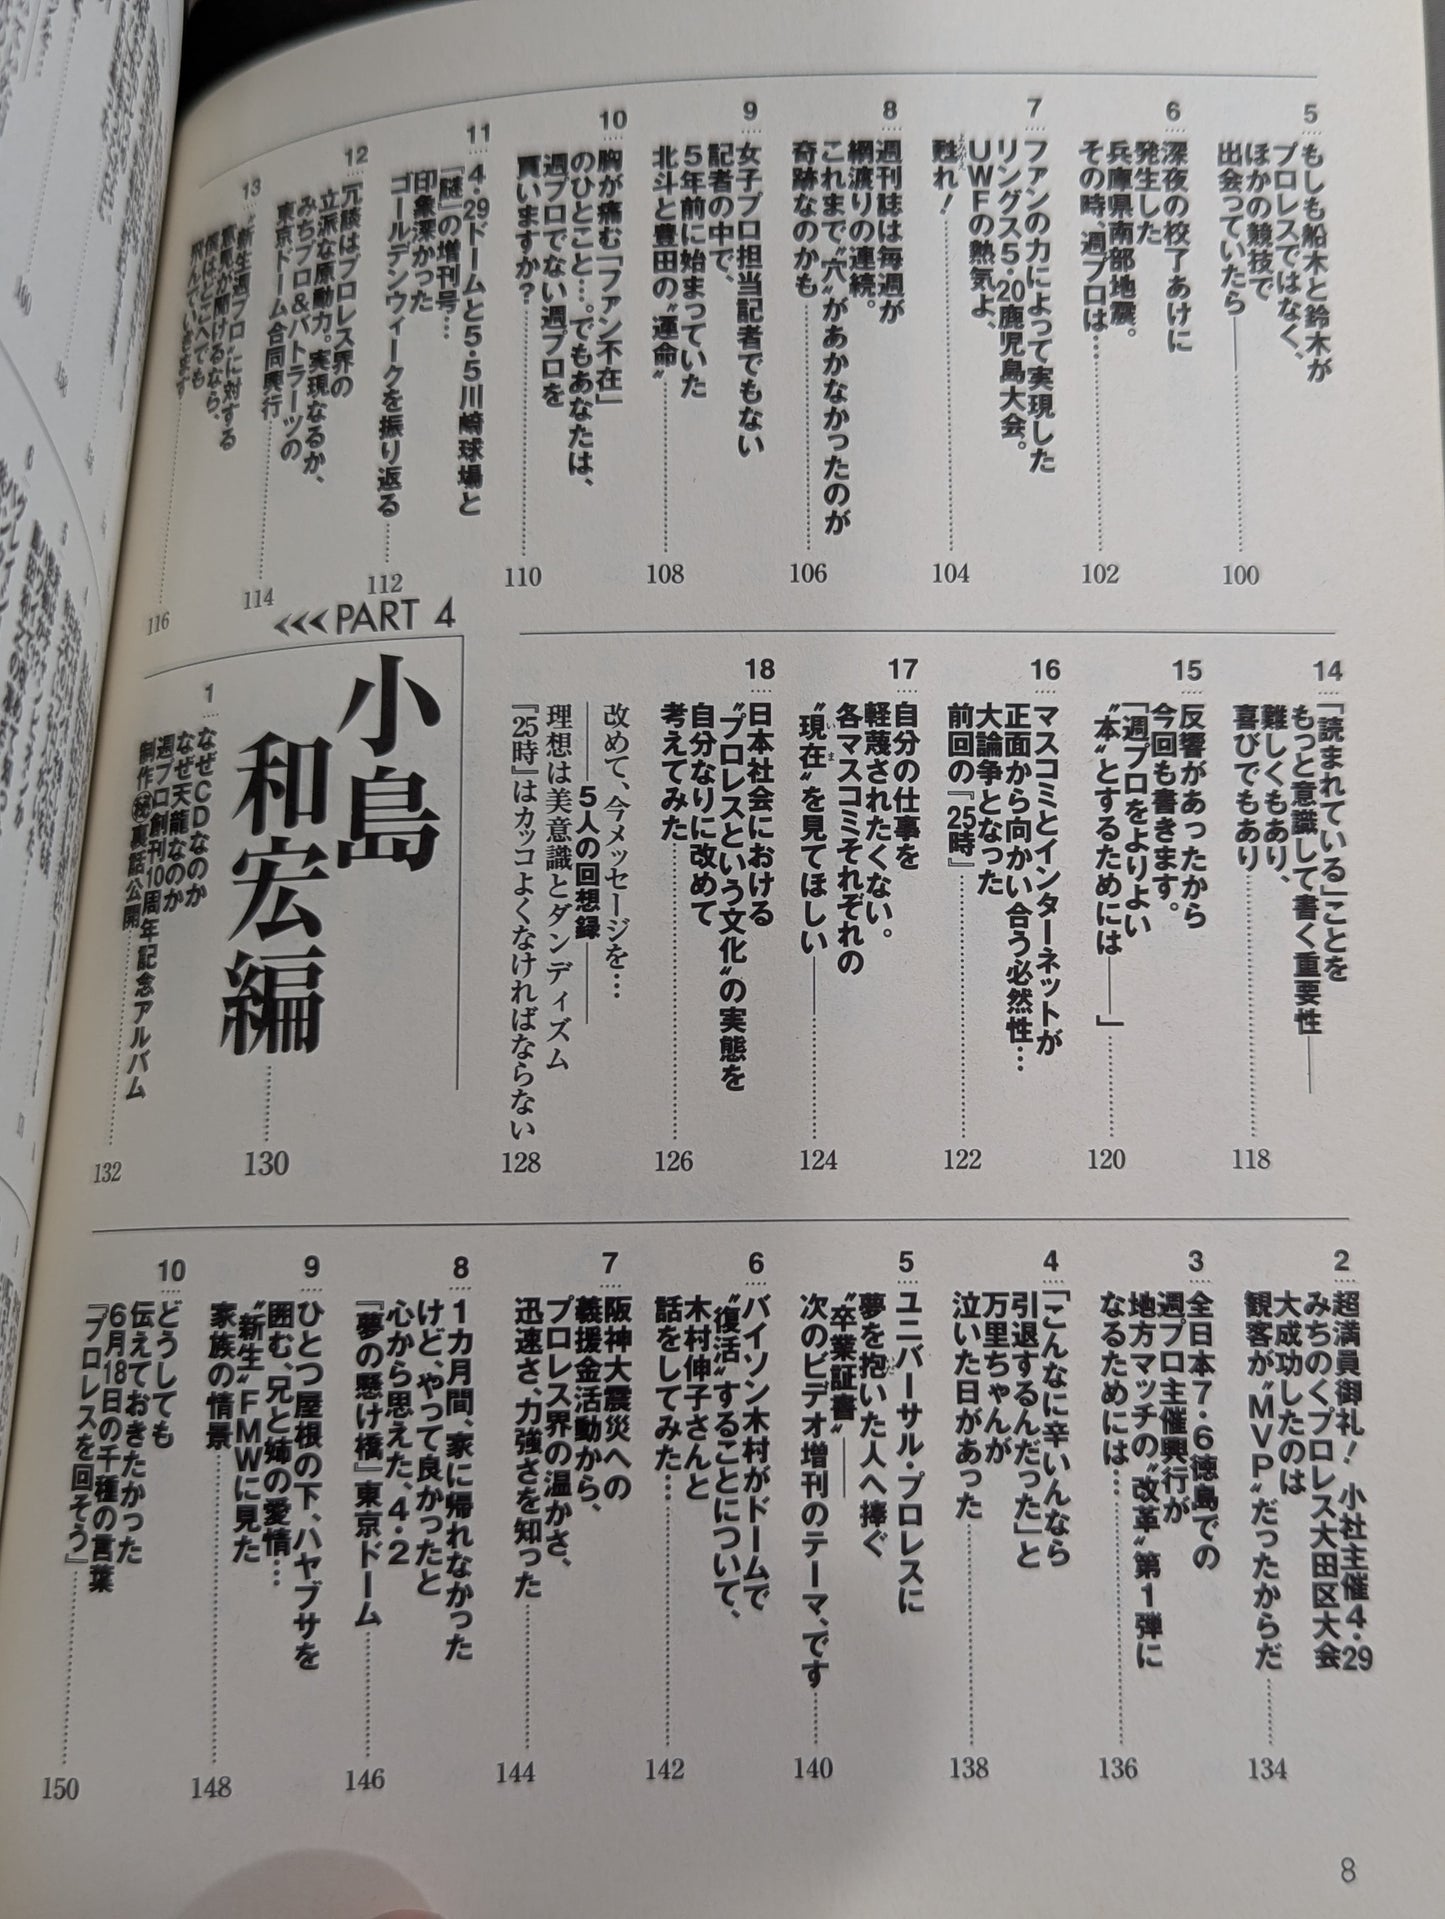 5……もしも船木と鈴木が
プロレスではなく、
ほかの競技で
出会っていたら――
100
6……深夜の校了あけに
発生した
兵庫県南部地震。
その時、週プロは……
102
7……ファンの力によって実現した
リングス5・20鹿児島大会。
UWFの熱気よ、
甦れ!
104
8……週刊誌は毎週が
綱渡りの連続。
これまで〝穴〟があかなかったのが
奇跡なのかも
106
9……女子プロ担当記者でもない
記者の中で、
5年前に始まっていた
北斗と豊田の〝運命〟
108
10……胸が痛む「ファン不在」
のひとこと…。でもあなたは、
週プロでない週プロを
買いますか?
110
11……4・29ドームと5・5川崎球場と
『謎』の増刊号…
印象深かった
ゴールデンウィークを振り返る
112
12……冗談はプロレス界の
立派な原動力。実現なるか、
みちプロ&バトラーツの
東京ドーム合同興行
114
13……〝新生週プロ〟に対する
意見が聞けるなら、
僕はどこへでも
飛んでいきます
116
14……「読まれている」ことを
もっと意識して書く重要性――
難しくもあり、
喜びでもあり
118
15……反響があったから
今回も書きます。
「週プロをよりよい
〝本〟とするためには――」
120
16……マスコミとインターネットが
正面から向かい合う必然性…
大論争となった
前回の『25時』
122
17……自分の仕事を
軽蔑されたくない。
各マスコミそれぞれの
〝現在〟を見てほしい――
いま
124
18……日本社会における
〝プロレスという文化〟の実態を
自分なりに改めて
考えてみた
126
改めて、今メッセージを…
――5人の回想録――
理想は美意識とダンディズム
『25時』はカッコよくなければならない
128
<<<PART 4
小島
和宏編
130
1……なぜCDなのか
なぜ天龍なのか
週プロ創刊10周年記念アルバム
制作㊙裏話公開
132
2……超満員御礼! 小社主催4・29
みちのくプロレス大田区大会
大成功したのは
観客が〝MVP〟だったからだ
134
3……全日本7・6徳島での
週プロ主催興行が
地方マッチの〝改革〟第1弾に
なるためには…
136
4……「こんなに辛いんなら
引退するんだった」と
万里ちゃんが
泣いた日があった
138
5……ユニバーサル・プロレスに
夢を抱いた人へ捧ぐ
いだ
〝卒業証書〟――
次のビデオ増刊のテーマ、です
140
6……バイソン木村がドームで
〝復活〟することについて、
木村伸子さんと
話をしてみた…
142
7……阪神大震災への
義援金活動から、
プロレス界の温かさ、
迅速さ、力強さを知った
144
8……1カ月間、家に帰れなかった
けど、やって良かったと
心から思えた、4・2
『夢の懸け橋』東京ドーム
146
9……ひとつ屋根の下、ハヤブサを
囲む、兄と姉の愛情…
〝新生〟FMWに見た
家族の情景
148
10……どうしても
伝えておきたかった
6月18日の千種の言葉
『プロレスを回そう』
150
8